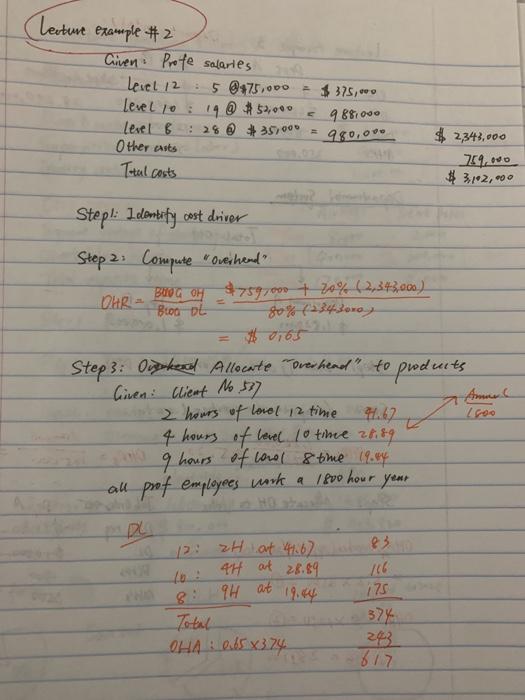 Lecture example #2
Given: Profe salaries
Level 12 : 5 @ $75,000 = $ 375,000
Level 10 : 19 @ $ 52,000 = 988,000
level 8 : 28 @ $ 35,000 = 980,000 $ 2,343,000
Other costs 759,000
Total costs $ 3,102,000
Step1: Identify cost driver
Step 2: Compute "overhead"
OHR = BUDG OH / BUDG DL = $759,000 + 20% (2,343,000) / 80% (2343000)
= $ 0,65
Step 3: Allocate "overhead" to products
Given: Client No 537
2 hours of level 12 time 41.67 Annual
4 hours of level 10 time 28.89 1800
9 hours of level 8 time 19.44
all prof employees work a 1800 hour year
DL
12: 2H at 41.67 83
10: 4H at 28.89 116
8: 9H at 19.44 175
Total 374
OHA: 0.65 x 374 243
617